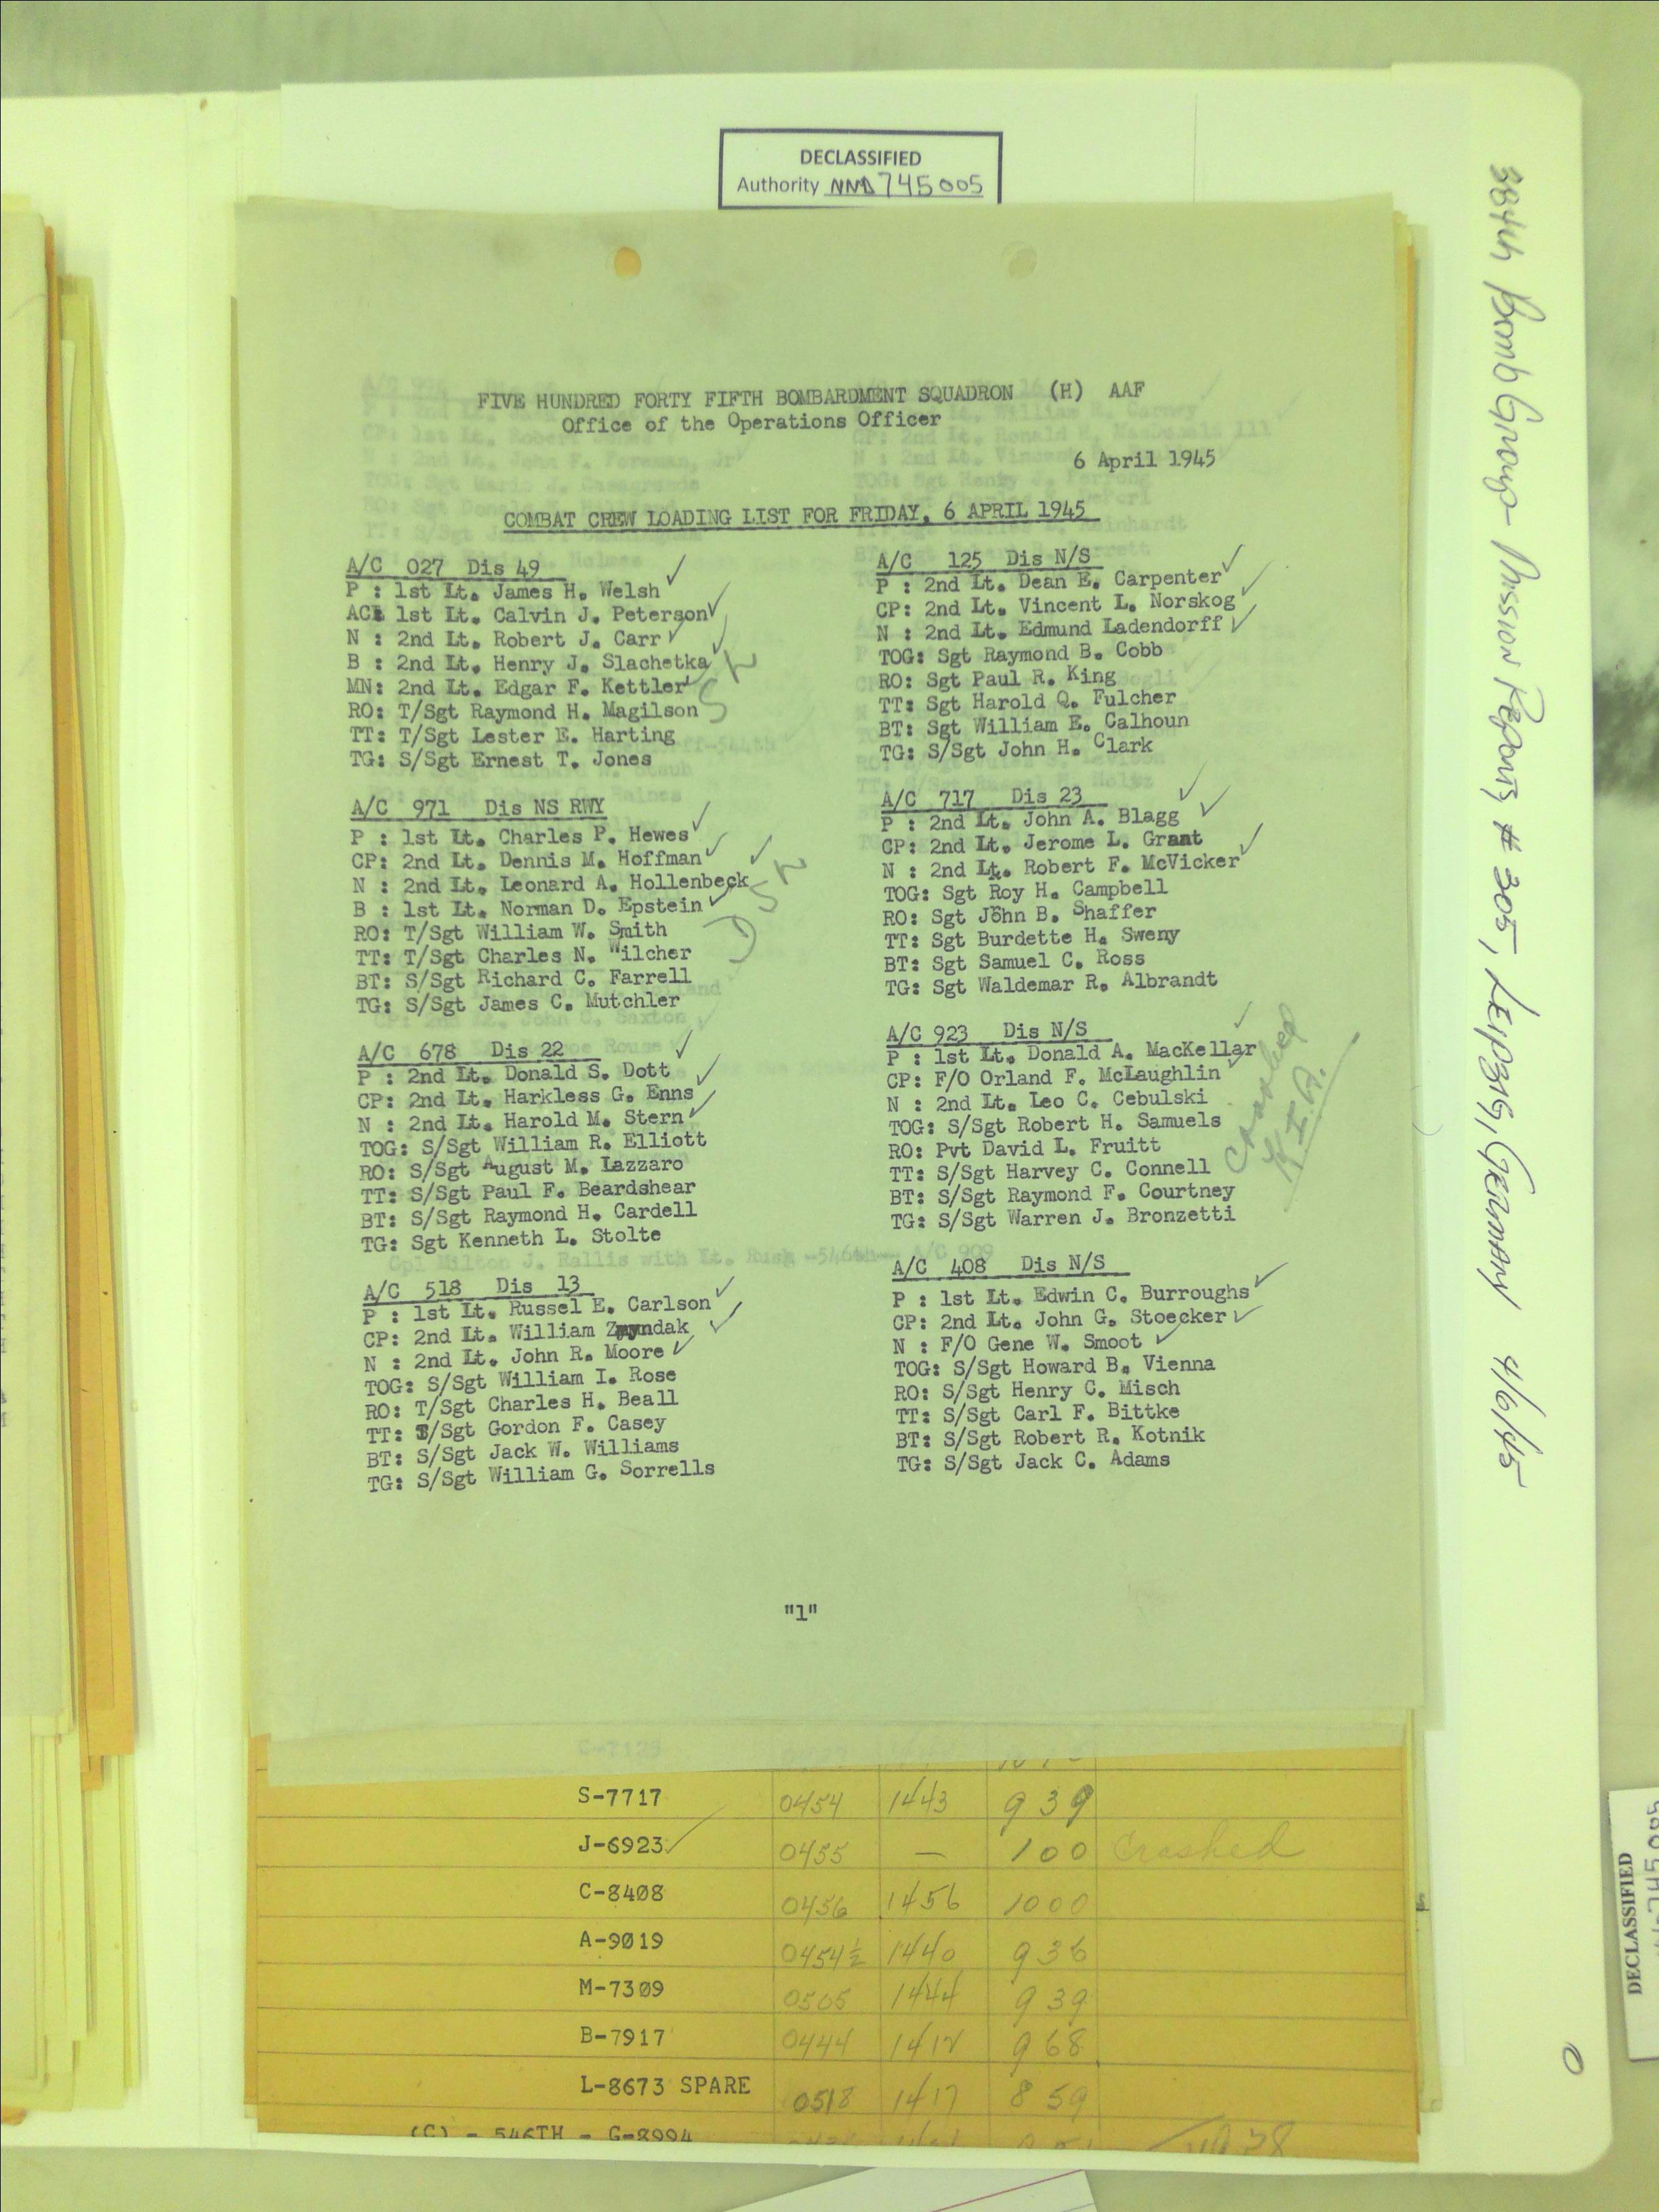 DECLASSIFIED
Authority NND 745005
FIVE HUNDRED FORTY FIFTH BOMBARDMENT SQUADRON (H) AAF
Office of the Operations Officer
6 April 1945
COMBAT CREW LOADING LIST FOR FRIDAY, 6 APRIL 1945
A/C 027 Dis 49
P : 1st Lt. James H. Welsh
1st Lt. Calvin J. Peterson
N : 2nd Lt. Robert J. Carr
B : 2nd Lt. Henry J. Slachetka
MN: 2nd Lt. Edgar F. Kettler
RO: T/Sgt Raymond H. Magilson
TT: T/Sgt Lester E. Harting
TG: S/Sgt Ernest T. Jones
A/C 971 Dis NS RWY
P : 1st Lt. Charles P. Hewes
CP: 2nd Lt. Dennis M. Hoffman
N : 2nd Lt. Leonard A. Hollenbeck
B : 1st Lt. Norman D. Epstein
RO: T/Sgt William W. Smith
TT: T/Sgt Charles N. Wilcher
BT: S/Sgt Richard C. Farrell
TG: S/Sgt James C. Mutchler
A/C 678 Dis 22
P : 2nd Lt. Donald S. Dott
CP: 2nd Lt. Harkless G. Enns
N : 2nd Lt. Harold M. Stern
TOG: S/Sgt William R. Elliott
RO: S/Sgt August M. Lazzaro
TT: S/Sgt Paul F. Beardshear
BT: S/Sgt Raymond H. Cardell
TG: Sgt Kenneth L. Stolte
A/C 518 Dis 13
P : 1st Lt. Russel E. Carlson
CP: 2nd Lt. William
N : 2nd Lt. John R. Moore
TOG: S/Sgt William I. Rose
RO: T/Sgt Charles H. Beall
TT: /Sgt Gordon F. Casey
BT: S/Sgt Jack W. Williams
TG: S/Sgt William G. Sorrells
A/C 125 Dis N/S
P : 2nd Lt. Dean E. Carpenter
CP: 2nd Lt. Vincent L. Norskog
N : 2nd Lt. Edmund Ladendorff
TOG: Sgt Raymond B. Cobb
RO: Sgt Paul R. King
TT: Sgt Harold Q. Fulcher
BT: Sgt William E. Calhoun
TG: S/Sgt John H. Clark
A/C 717 Dis 23
P : 2nd Lt. John A. Blagg
CP: 2nd Lt. Jerome L. Grant
N : 2nd Lt. Robert F. McVicker
TOG: Sgt Roy H. Campbell
RO: Sgt John B. Shaffer
TT: Sgt Burdette H. Sweny
BT: Sgt Samuel C. Ross
TG: Sgt Waldemar R. Albrandt
A/C 923 Dis N/S
P : 1st Lt. Donald A. MacKellar
CP: F/O Orland F. McLaughlin
N : 2nd Lt. Leo C. Cebulski
TOG: S/Sgt Robert H. Samuels
RO: Pvt David L. Fruitt
TT: S/Sgt Harvey C. Connell
BT: S/Sgt Raymond F. Courtney
TG: S/Sgt Warren J. Bronzetti
Crashed
K.I.A.
A/C 408 Dis N/S
P : 1st Lt. Edwin C. Burroughs
CP: 2nd Lt. John G. Stoecker
N : F/O Gene W. Smoot
TOG: S/Sgt Howard B. Vienna
RO: S/Sgt Henry C. Misch
TT: S/Sgt Carl F. Bittke
BT: S/Sgt Robert R. Kotnik
TG: S/Sgt Jack C. Adams
"1"
S-7717 0454 1443 939
J-6923 0455 — 100 Crashed
C-8408 0456 1456 1000
A-9019 0454½ 1440 936
M-7309 0505 1444 939
B-7917 0444 1412 968
L-8673 SPARE 0518 1417 859
(C) - 546TH - G-8994
384th Bomb Group - Mission Reports # 305, Leipzig, Germany 4/6/45
DECLASSIFIED